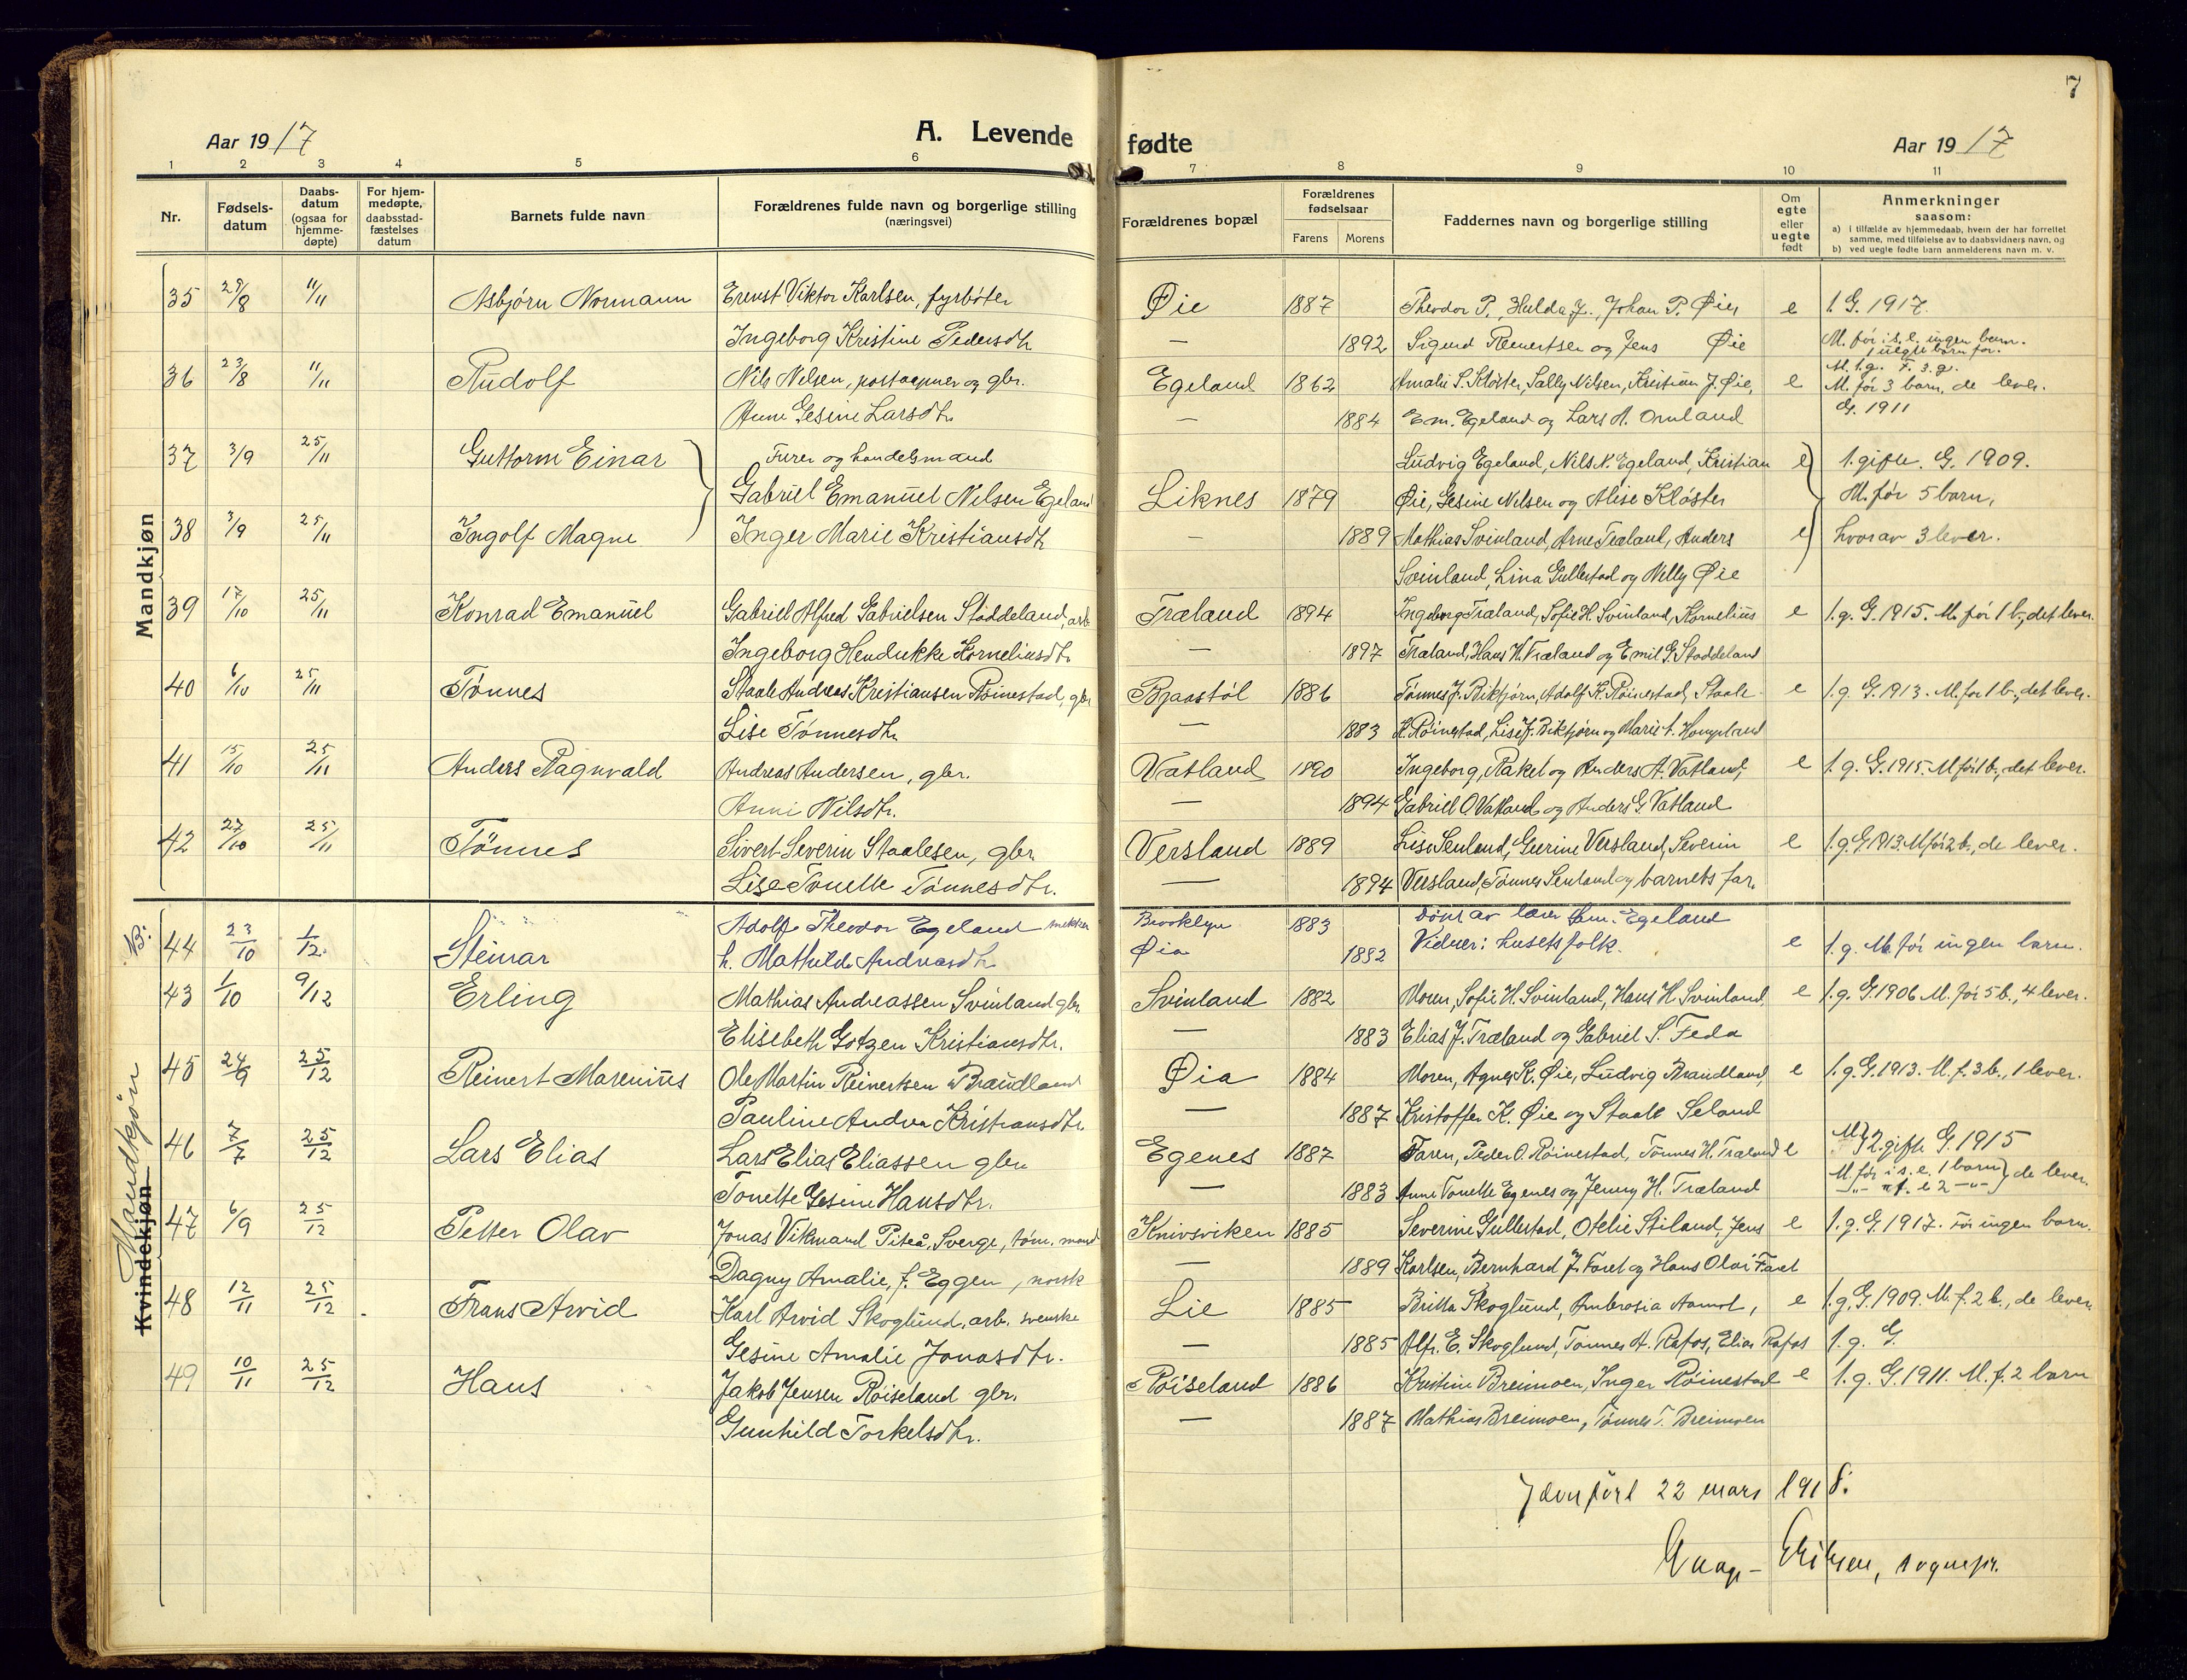 7
Aar 1917
A. Levende fødte
Aar 1917
1 2 3 4 5 6 7 8 9 10 11
Nr.
Fødsels-datum
Daabs-datum (ogsaa for hjemme-døpte)
For hjem-medøpte, daabsstad-fæstelses datum
Barnets fulde navn
Forældrenes fulde navn og borgerlige stilling (næringsvei)
Forældrenes bopæl
Forældrenes fødselsaar
Farens Morens
Faddernes navn og borgerlige stilling
Om egte eller uegte født
Anmerkninger saasom:
a) i tilfælde av hjemmedaab, hvem der har forrettet samme, med tilføielse av to daabsvidners navn, og
b) ved uegte fødte barn anmelderens navn m. v.
Mandkjøn
35 29/8 11/11 Asbjørn Normann Ernst Viktor Karlsen, fyrbøter Øie 1887 Theodor P., Hulda J., Johan P. Øie, e 1. G. 1917.
Ingeborg Kristine Pedersdtr — 1892 Sigurd Reinertsen og Jens Øie M. før i s. e. ingen barn.
1 uegte barn før.
36 23/8 11/11 Rudolf Nils Nilsen, postaapner og gbr. Egeland 1862 Amalie S. Kløster, Sally Nilsen, Kristian J. Øie, e M. 1. g. F. 3. g.
M. før 3 barn, de lever.
Anne Gesine Larsdtr. — 1884 Em. Egeland og Lars A. Omland G. 1911
37 3/9 25/11 Guttorm Einar Furer og handelsmand Ludvig Egeland, Nils N. Egeland, Kristian e 1. gifte. G. 1909.
Gabriel Emanuel Nilsen Egeland Liknes 1879 Øie, Gesine Nilsen og Alise Kløster M. før 5 barn,
38 3/9 25/11 Ingolf Magne Inger Marie Kristiansdtr — 1889 Mathias Svinland, Arne Træland, Anders e hvorav 3 lever.
Svinland, Lina Gullestad og Nelly Øie
39 17/10 25/11 Konrad Emanuel Gabriel Alfred Gabrielsen Stoddeland, arb Træland 1894 Ingeborg Træland, Sofie H. Svinland, Kornelius e 1. g. G. 1915. M. før 1 b., det lever.
Ingeborg Hendrikke Korneliusdtr — 1897 Træland, Hans H. Træland og Emil G. Stoddeland
40 6/10 25/11 Tønnes Staale Andreas Kristiansen Røinestad, gbr Bjaastøl 1886 Tønnes J. Birkjørn, Adolf K. Røinestad, Staale e 1. g. G. 1913. M. før 1 b., det lever.
Lise Tønnesdtr. — 1883 K. Røinestad, Lise J. Birkjørn og Marie A. Hompland
41 15/10 25/11 Anders Ragnvald Andreas Andersen, gbr. Vatland 1890 Ingeborg, Rakel og Anders A. Vatland, e 1. g. G. 1915. M før 1 b., det lever.
Anni Nilsdtr. — 1894 Gabriel O. Vatland og Anders G. Vatland
42 27/10 25/11 Tønnes Sivert Severin Staalesen, gbr. Versland 1889 Lise Senland, Gurine Versland, Severin e 1. g. G. 1913. M før 2 b., de lever.
Lise Tonette Tønnesdtr. — 1894 Versland, Tønnes Senland og barnets far.
NB:
44 23/10 1/12 Steinar Adolf Theodor Egeland Brooklyn 1883 Døpt av lærer Em. Egeland
h. Mathilde Andreasdtr Øia 1882 Vidner: husets folk. e 1. g. M. før ingen barn.
Kvindekjøn Mandkjøn
43 1/10 9/12 Erling Mathias Andreassen Svinland gbr. Svinland 1882 Moren, Sofie H. Svinland, Hans H. Svinland, e 1. g. G. 1906 M. før 5 b., 4 lever.
Elisebeth Gotzen Kristiansdtr. — 1883 Elias J. Træland og Gabriel S. Feda
45 24/9 25/12 Reinert Marenius Ole Martin Reinertsen Braudland Øia 1884 Moren, Agnes K. Øie, Ludvig Braudland, e 1. g. G. 1913. M. f. 3 b., 1 lever.
Pauline Andrea Kristiansdtr — 1887 Kristoffer K. Øie og Staale Seland
46 7/7 25/12 Lars Elias Lars Elias Eliassen gbr. Egenes 1887 Faren, Peder O. Røinestad, Tønnes H. Træland e 2. gifte G. 1915
Tonette Gesine Hansdtr. — 1883 Anne Tonette Egenes og Jenny H. Træland M. før i s. e. 1 barn de lever.
47 6/9 25/12 Petter Olav Jonas Vikmand Piteå, Sverge, tøm. mand Knivsviken 1885 Severine Gullestad, Otelie Stiland, Jens e 1. g. G. 1917. Før ingen barn.
Dagny Amalie, f. Eggen, norsk — 1889 Karlsen, Bernhard J. Faret og Hans Olai Faret
48 12/11 25/12 Frans Arvid Karl Arvid Skoglund, arb. svenske Lie 1885 Britta Skoglund, Ambrosia Aamot, e 1. g. G. 1909. M. f. 2 b., de lever.
Gesine Amalie Jonasdtr. — 1885 Alfr. E. Skoglund, Tønnes A. Rafos, Elias Rafos 1. g. G.
49 10/11 25/12 Hans Jakob Jensen Røiseland gbr. Røiseland 1886 Kristine Breimoen, Inger Røinestad e 1. g. G. 1911. M. f. 2 barn
Gunhild Torkelsdtr. — 1887 Mathias Breimoen, Tønnes T. Breimoen
Jævnført 22 mars 1918.
Eriksen, sognepr.